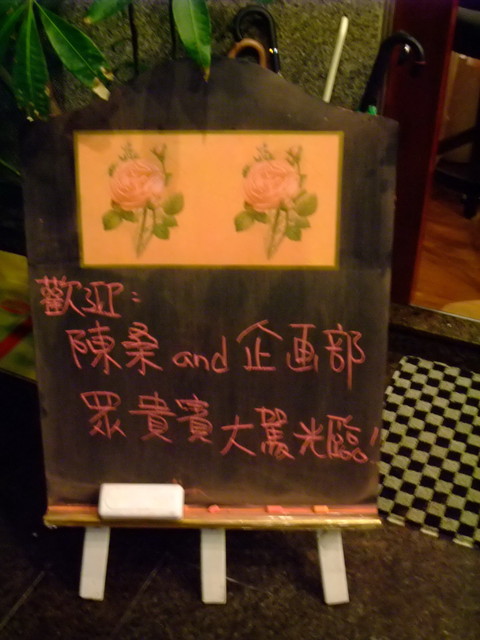 歡迎:
陳桑and企画部
眾貴賓大駕光臨!